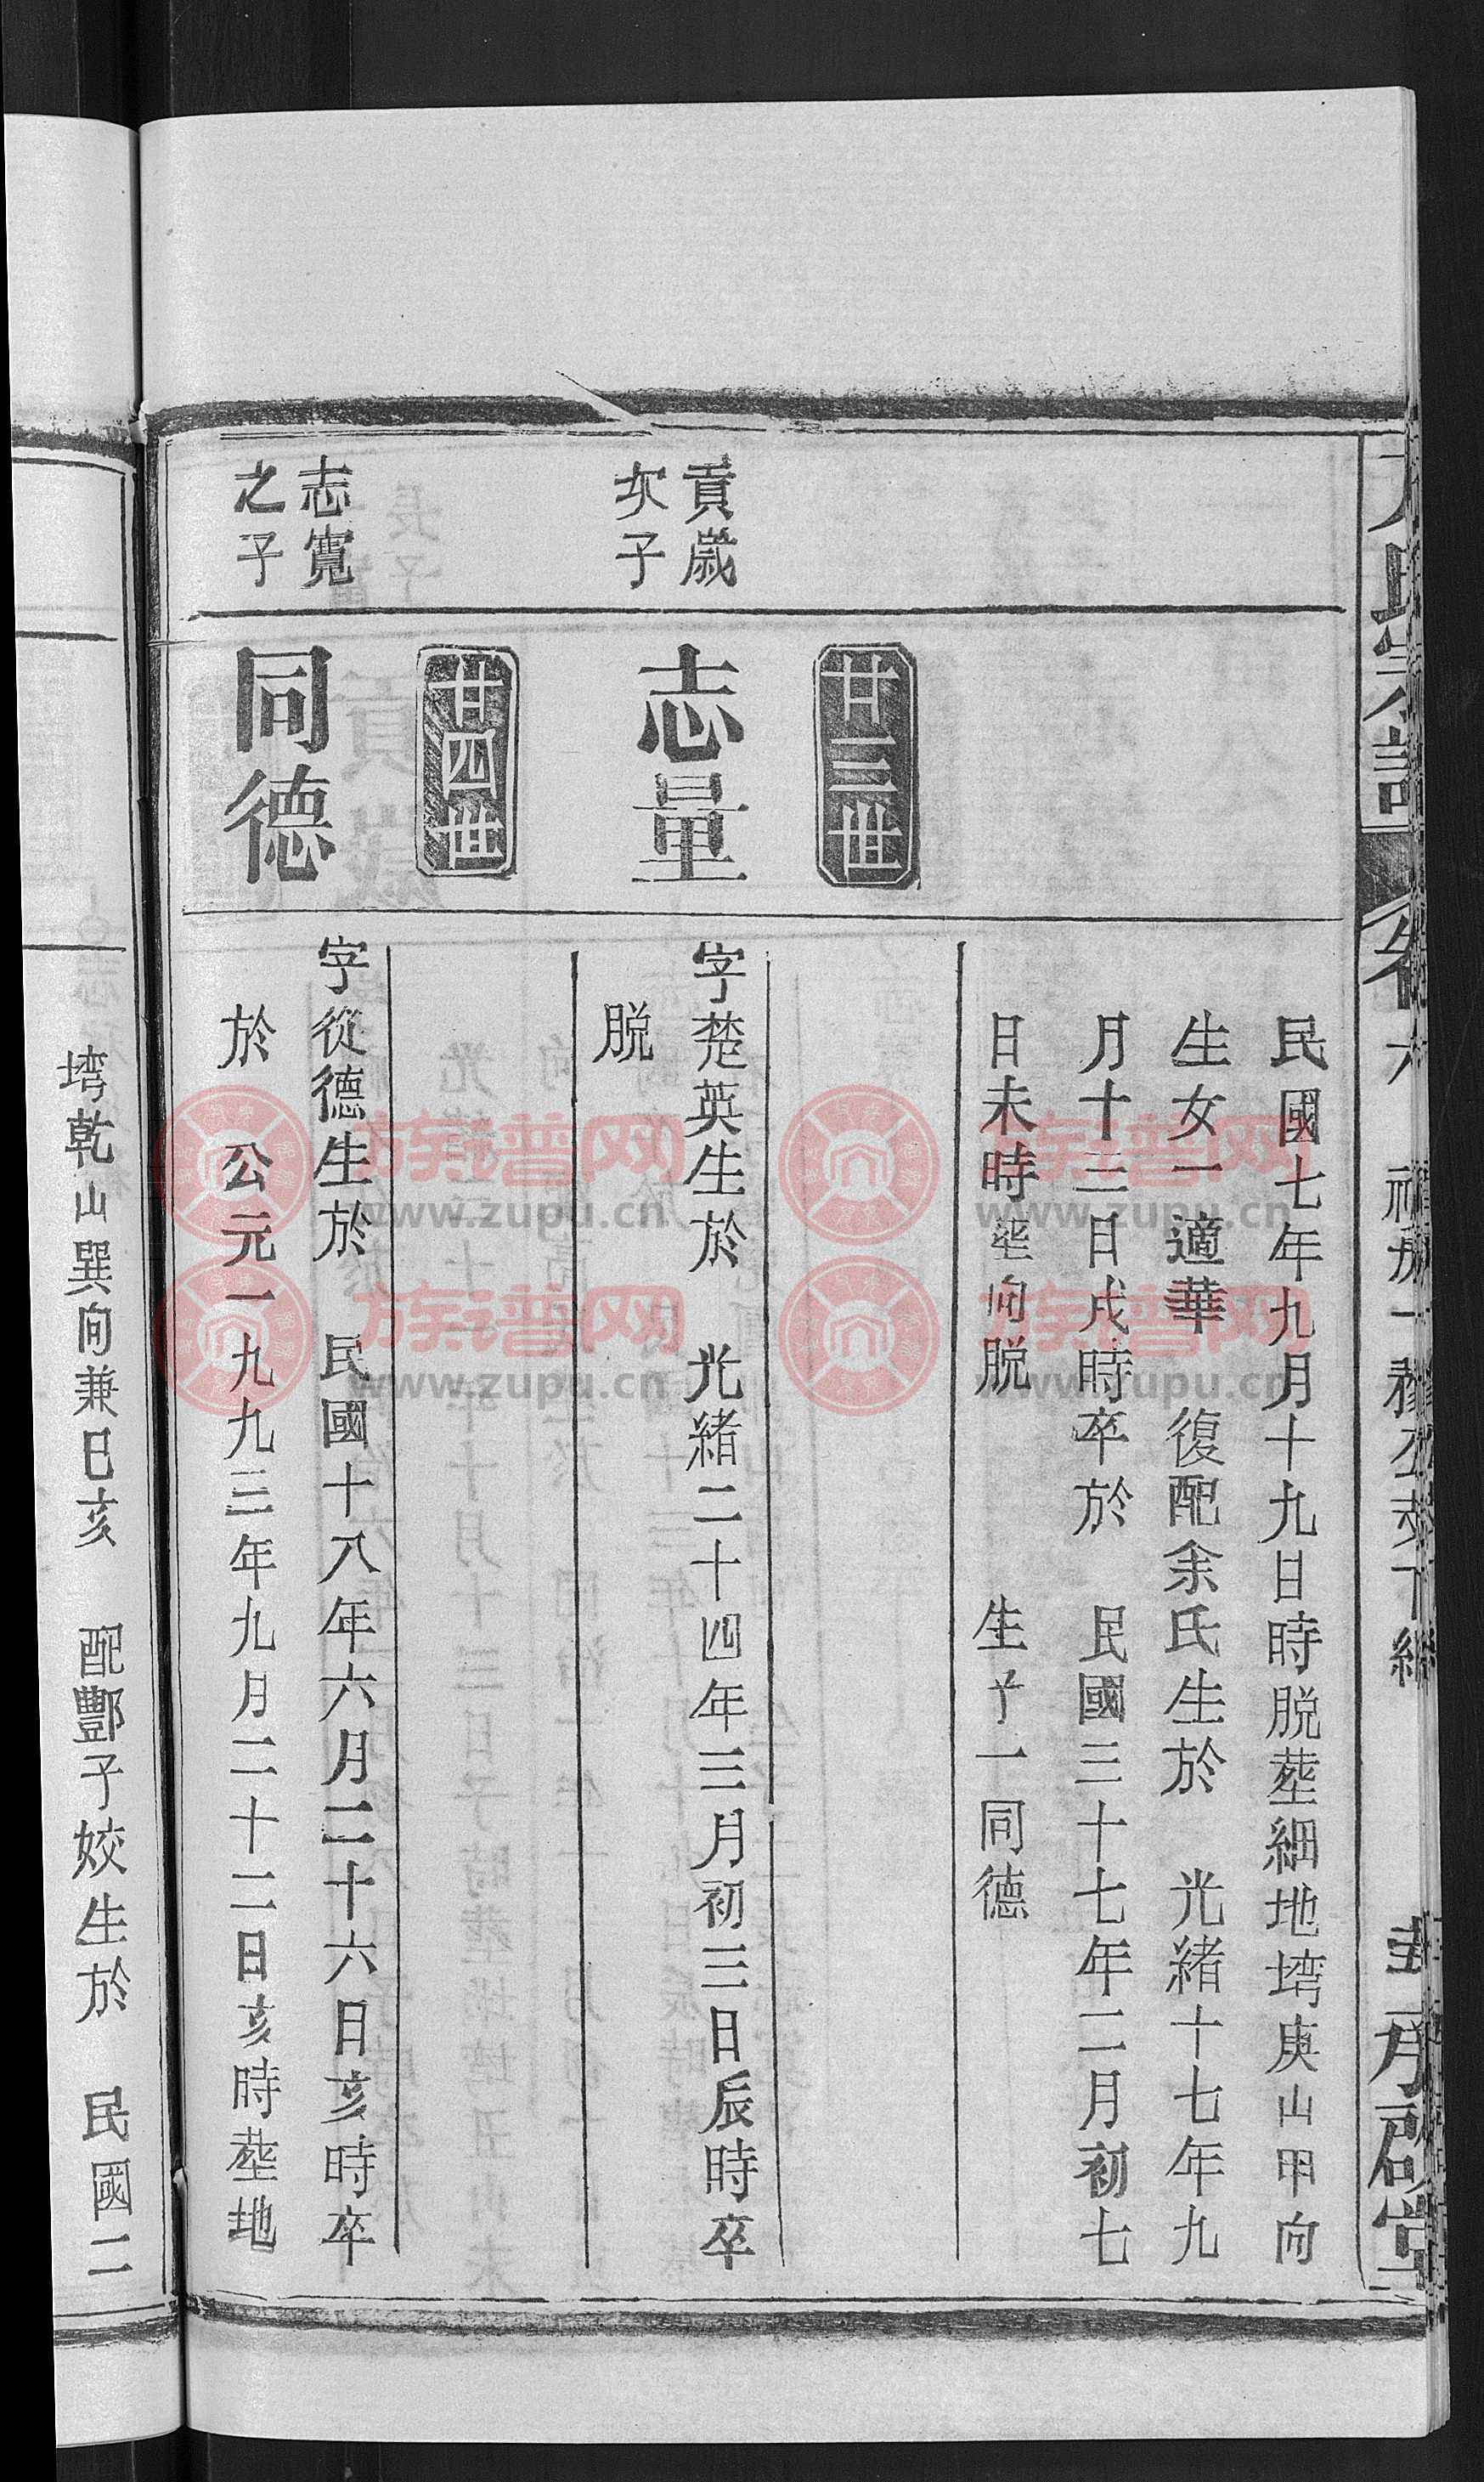 民國七年九月十九日時脱塟細地塆庚山甲向
生女一適華 復配余氏生於 光緒十七年九
月十三日戌時卒於 民國三十七年二月初七
日未時塟向脱 生子一同德
廿三世
貢嵗
次子
志量
字楚英生於 光緒二十四年三月初三日辰時卒
脱
廿四世
志寛
之子
同德
字從德生於 民國十八年六月二十六日亥時卒
於 公元一九九三年九月二十二日亥時塟地
塆乾山巽向兼巳亥 配酆子姣生於 民國二
族譜网
www.zupu.cn
族譜网
www.zupu.cn
族譜网
www.zupu.cn
族譜网
www.zupu.cn